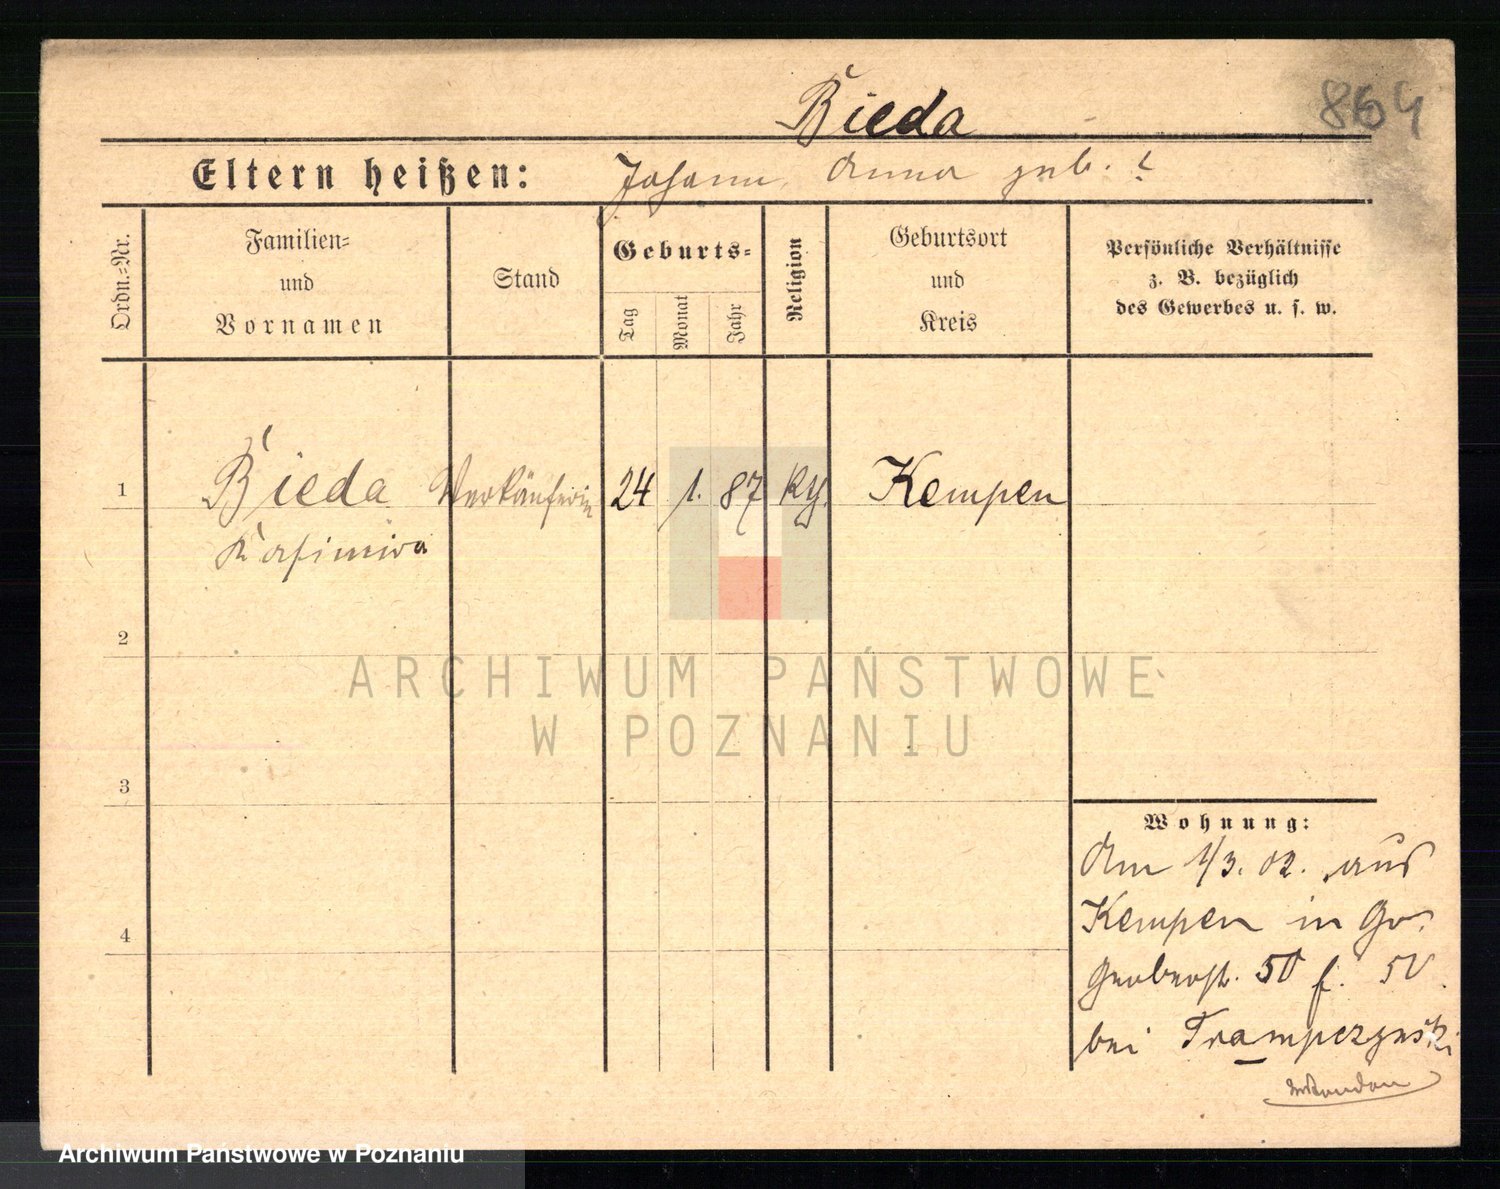 Bieda
864
Eltern heißen: Johann, Anna geb. ?
Ordn.=Nr.
Familien=
und
Vornamen
Stand
Geburts=
Tag
Monat
Jahr
Religion
Geburtsort
und
Kreis
Persönliche Verhältnisse
z. B. bezüglich
des Gewerbes u. s. w.
1 Bieda Verkäuferin 24 1. 87 Kempen
Kasimira
2
ARCHIWUM PAŃSTWOWE
W POZNANIU
3
Wohnung:
Am 1/3. 02. aus
Kempen in Gr.
Gerberstr. 50 f. 50
bei Trampczynski
4
Archiwum Państwowe w Poznaniu